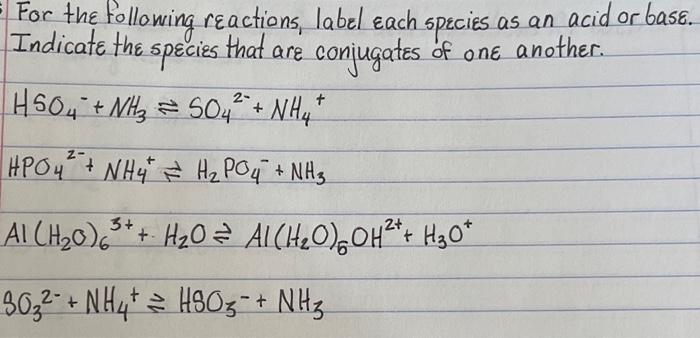 For the following reactions, label each species as an acid or base.
Indicate the species that are conjugates of one another.
HSO₄⁻ + NH₃ ⇌ SO₄²⁻ + NH₄⁺
HPO₄²⁻ + NH₄⁺ ⇌ H₂PO₄⁻ + NH₃
Al(H₂O)₆³⁺ + H₂O ⇌ Al(H₂O)₅OH²⁺ + H₃O⁺
SO₃²⁻ + NH₄⁺ ⇌ HSO₃⁻ + NH₃